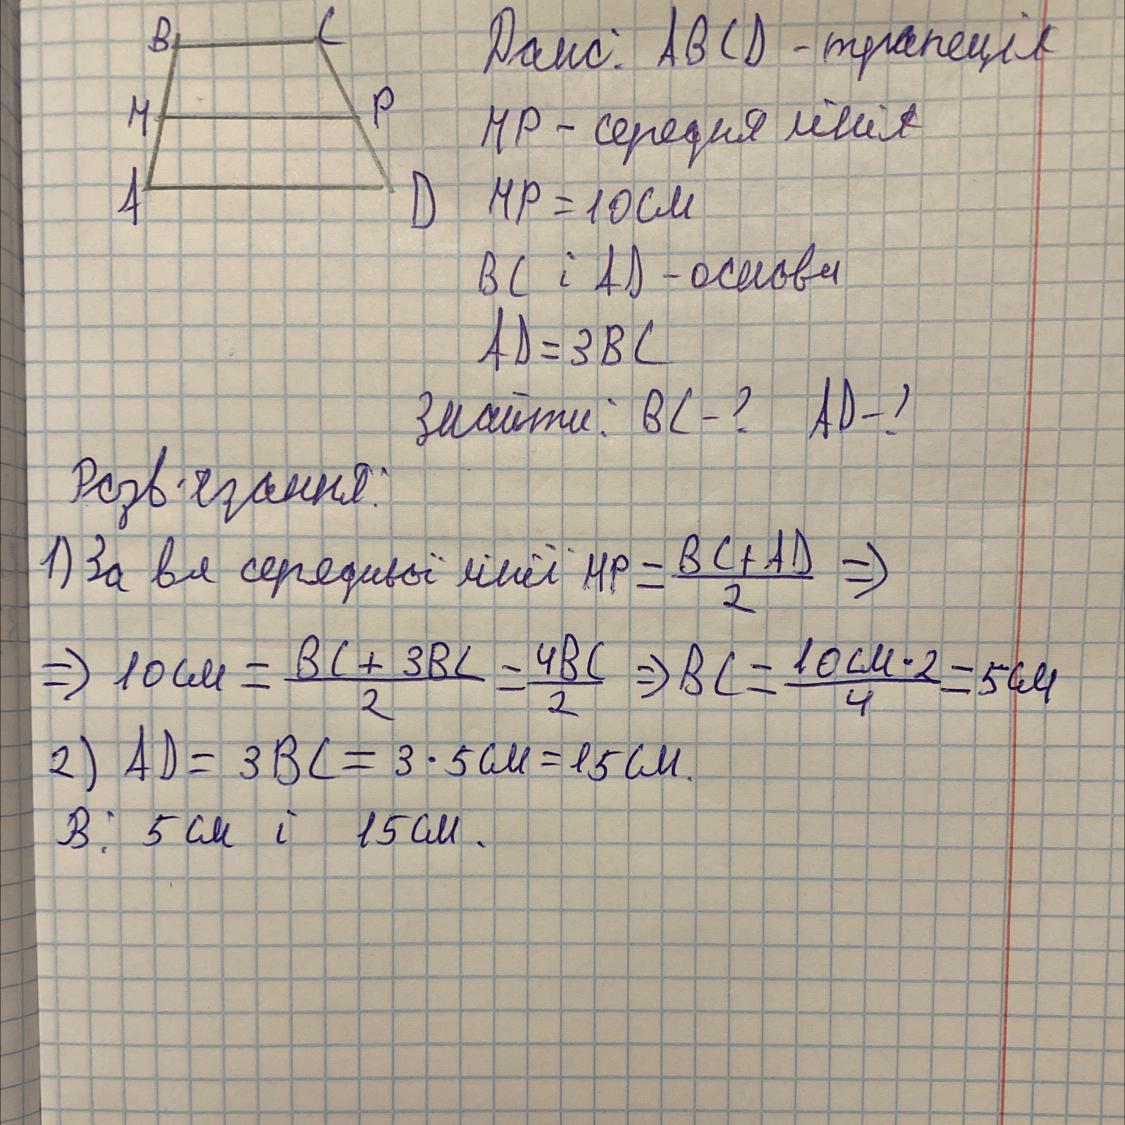 B C
M P
A D
Дано: ABCD - трапеція
MP - середня лінія
MP = 10 см
BC і AD - основи
AD = 3BC
Знайти: BC - ? AD - ?
Розв'язання:
1) За вл середньої лінії MP = (BC + AD)/2 =>
=> 10 см = (BC + 3BC)/2 = 4BC/2 => BC = (10 см · 2)/4 = 5 см
2) AD = 3BC = 3 · 5 см = 15 см.
В: 5 см і 15 см.